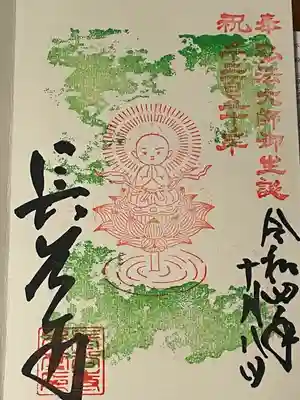 奉弘法大師御生誕
祝千二百五十年
令和四年
十月八日
長谷寺